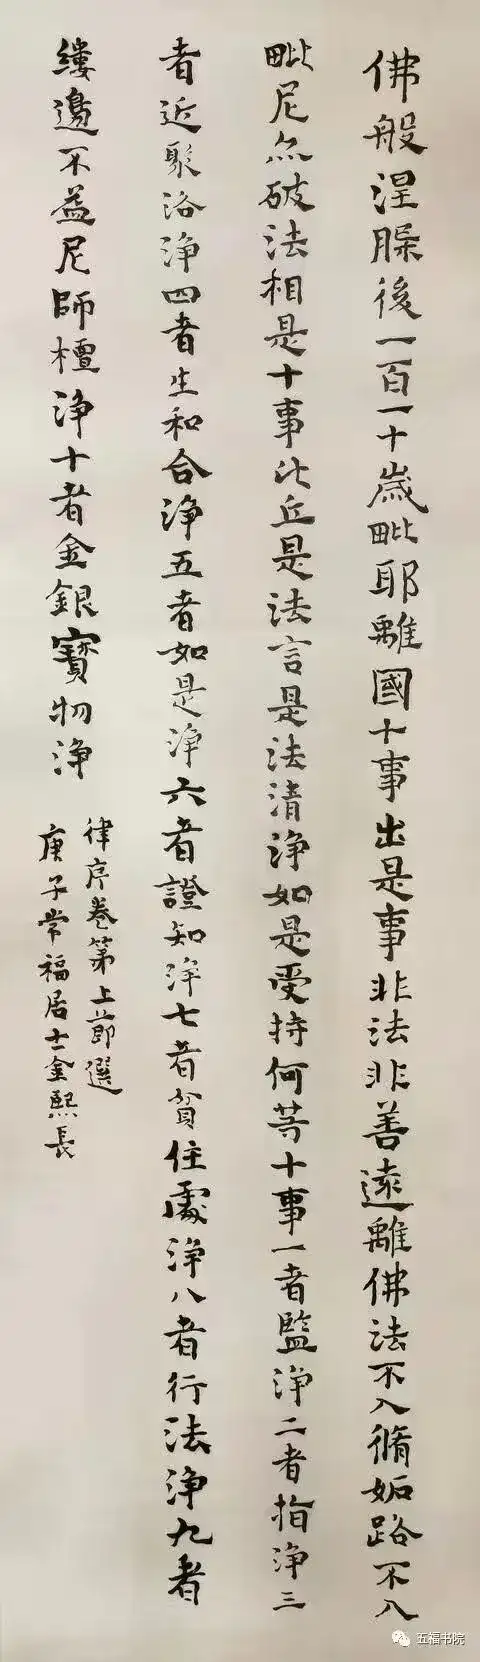 佛般涅臊後一百一十歲毗耶離國十事出是事非法非善遠離佛法不入脩妬路不入
毗尼亦破法相是十事比丘是法言是法清淨如是受持何等十事一者監淨二者指淨三
者近聚洛淨四者生和合淨五者如是淨六者證知淨七者貧住處淨八者行法淨九者
縷邊不益尼師檀淨十者金銀寶物淨
律序卷第上節選
庚子常福居士金熙長
五福书院